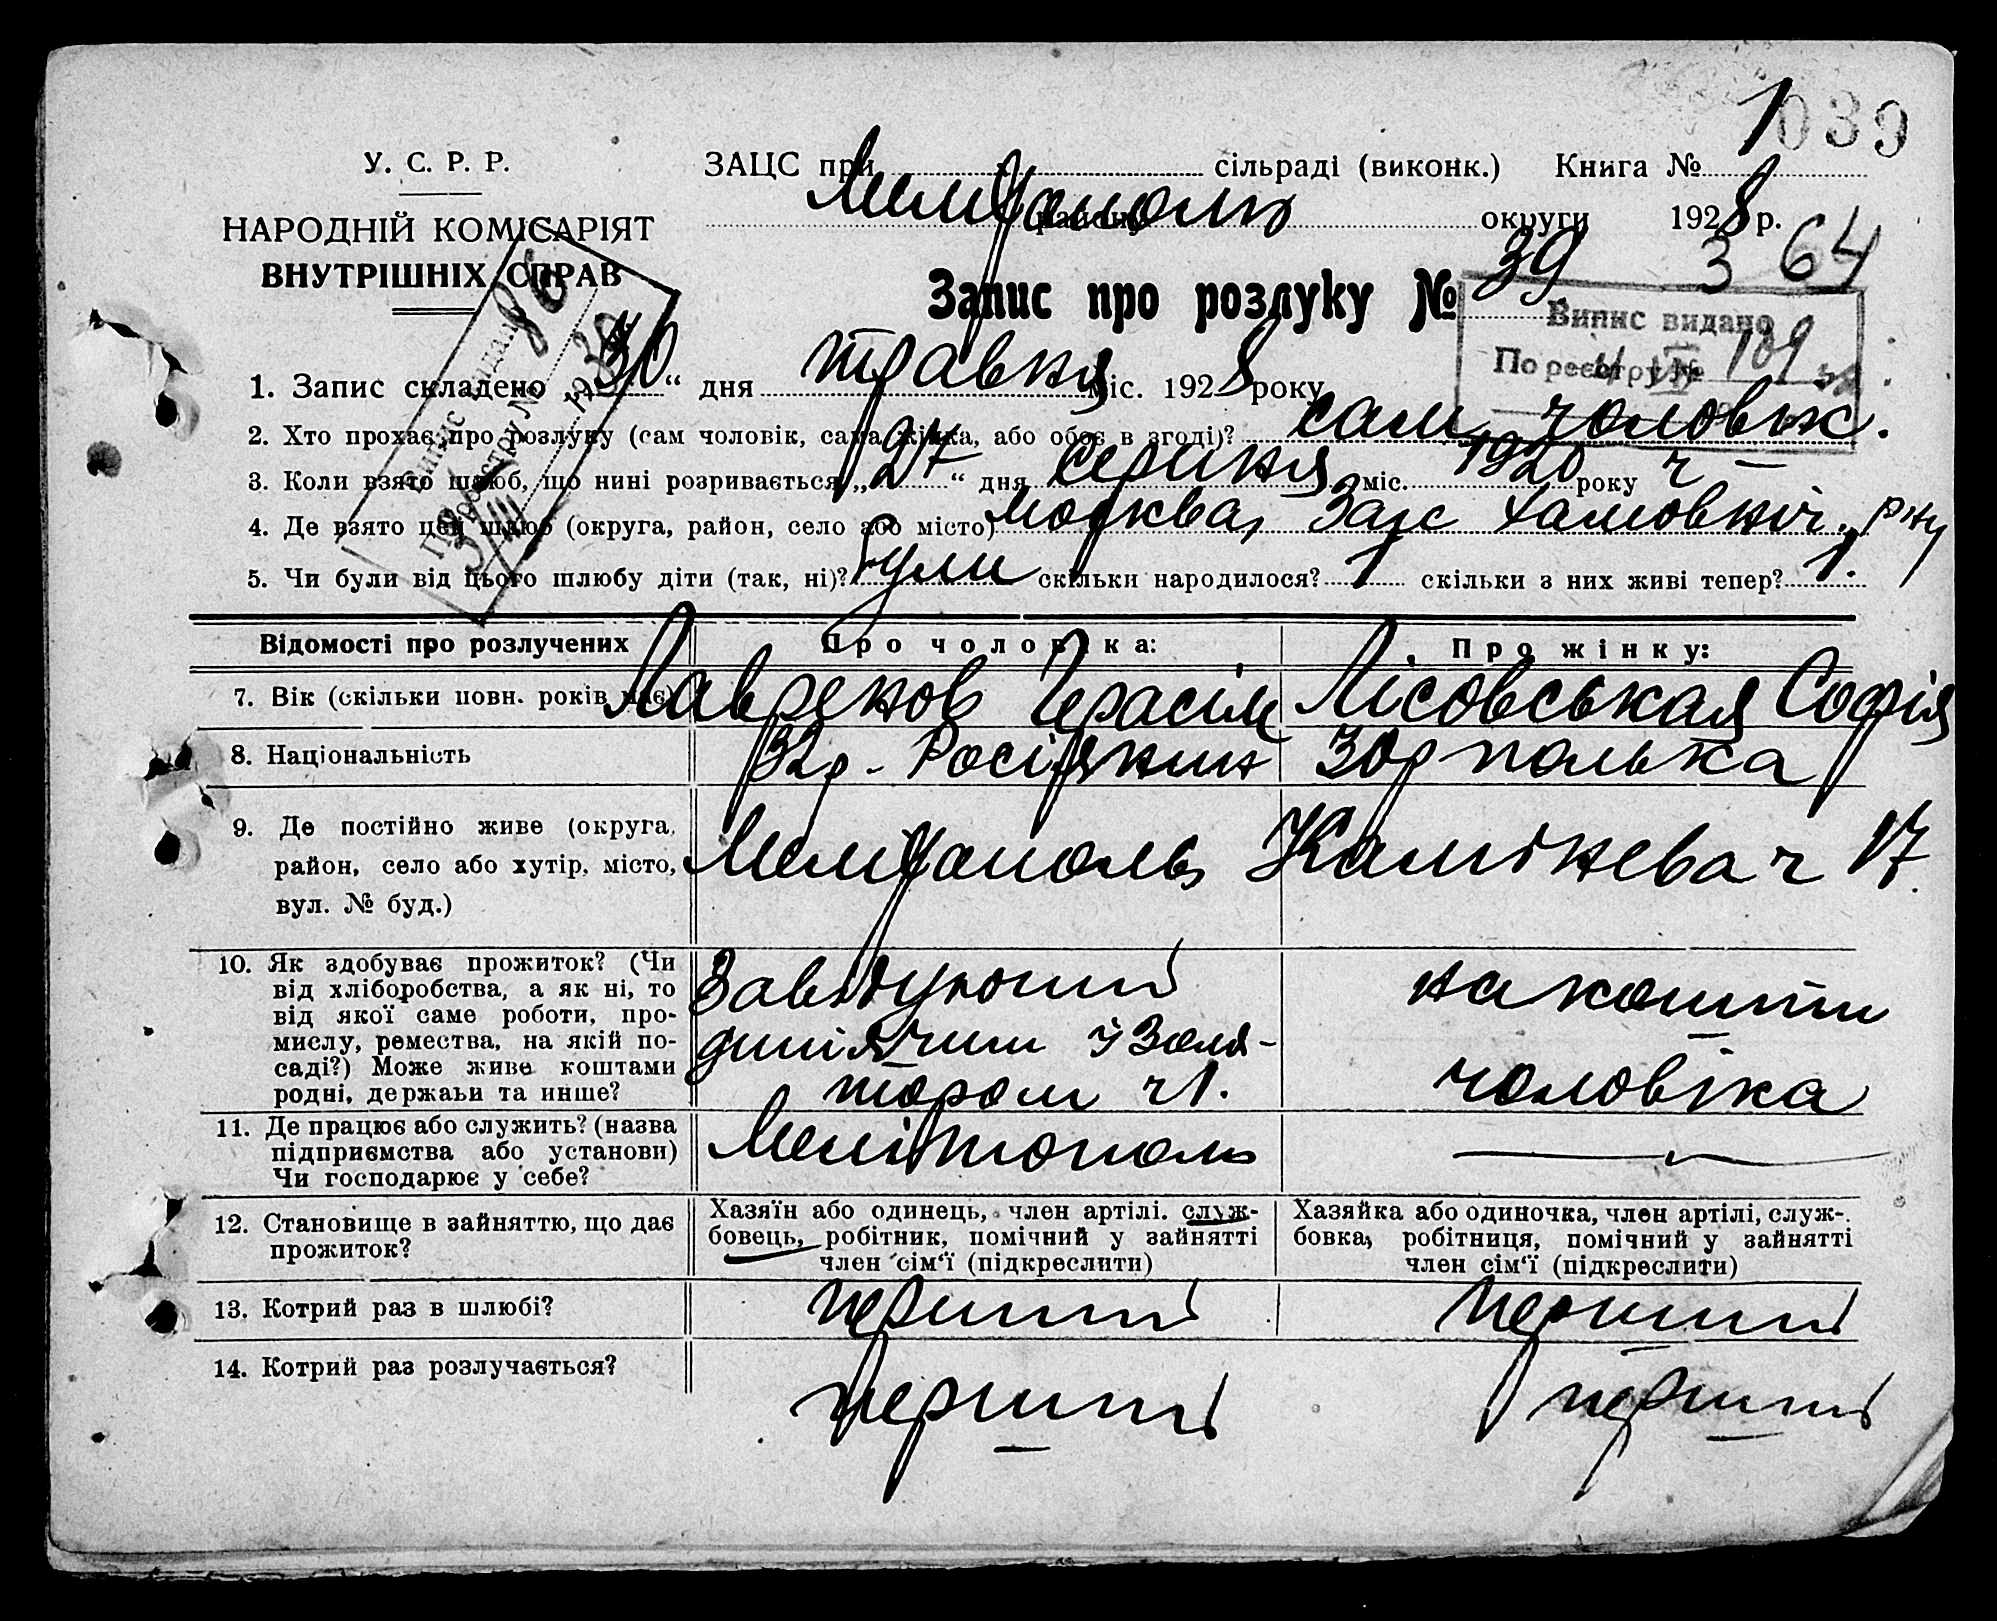 1039
У. С. Р. Р.
ЗАЦС при сільраді (виконк.) Книга № 1
НАРОДНІЙ КОМІСАРІЯТ
ВНУТРІШНІХ СПРАВ
Мелітополь району округи 1928 р.
Запис про розлуку № 39
3 64
Випис видано
По реєстру № 189
Випис видано
По реєстру №
1. Запис складено „30“ дня травня міс. 1928 року
2. Хто прохає про розлуку (сам чоловік, сама жінка, або обоє в згоді)? сам чоловік.
3. Коли взято шлюб, що нині розривається „27“ дня Серпня міс. 1920 року ч —
4. Де взято цей шлюб (округа, район, село або місто) Москва, Загс Хамовніч. р-ну
5. Чи були від цього шлюбу діти (так, ні)? Були скільки народилося? 1 скільки з них живі тепер? 1.
Відомості про розлучених
Про чоловіка:
Про жінку:
7. Вік (скільки повн. років має)
Лавренов Герасім
Лісовськая Софія
8. Національність
32 р. Росіянин
30 р полька
9. Де постійно живе (округа, район, село або хутір, місто, вул. № буд.)
Мелітополь Камінева ч 17.
10. Як здобуває прожиток? (Чи
від хліборобства, а як ні, то
від якої саме роботи, про-
мислу, ремества, на якій по-
саді?) Може живе коштами
родні, держави та инше?
Завідующий
дитячим ізоля-
тором ч 1.
на кошти
чоловіка
11. Де працює або служить? (назва
підприємства або установи)
Чи господарює у себе?
Мелітополь
—
12. Становище в зайняттю, що дає
прожиток?
Хазяїн або одинець, член артілі, служ-
бовець, робітник, помічний у зайнятті
член сім‘ї (підкреслити)
Хазяйка або одиночка, член артілі, служ-
бовка, робітниця, помічний у зайнятті
член сім‘ї (підкреслити)
13. Котрий раз в шлюбі?
перший
перший
14. Котрий раз розлучається?
перший
перший